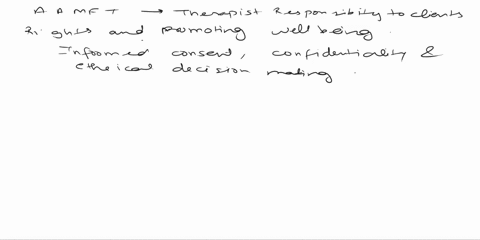 AAMFT → Therapist Responsibility to clients
Rights and promoting well being.
Informed consent, confidentiality &
ethical decision making.